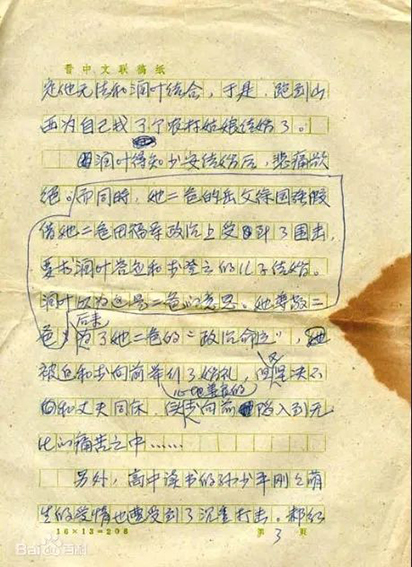 晋中文联稿纸
定他无法和润叶结合，于是，跑到山
西为自己找了个农村姑娘结婚了。
润叶得知少安结婚后，悲痛欲
绝。而同时，她二爸的岳父徐国强假
借她二爸田福军政治上受到了围击，
要求润叶答应和李登云的儿子结婚。
润叶以为这是二爸的意思。她尊敬二
后来
爸，为了她二爸的“政治命运”，她
被迫和李向前举行了婚礼，但又决不
心地善良的
和丈夫同床，李向前陷入到无
比的痛苦之中……
另外，高中读书的孙少平刚刚萌
生的爱情也遭受到了沉重打击。郝红
16×13=208 第 3 页
Baidu百科